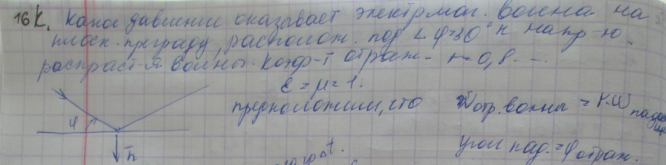 16к. Какое давление оказывает электрмаг. волна на
плоск. преграду, располож. под ∠ φ=30° к напр-ю
распрост-я волны. Коэф-т отраж. r=0,8.
ε = μ = 1.
предположим, что
Wотр. волны = r·W пад
φ
n̄
угол пад. = φ отраж.